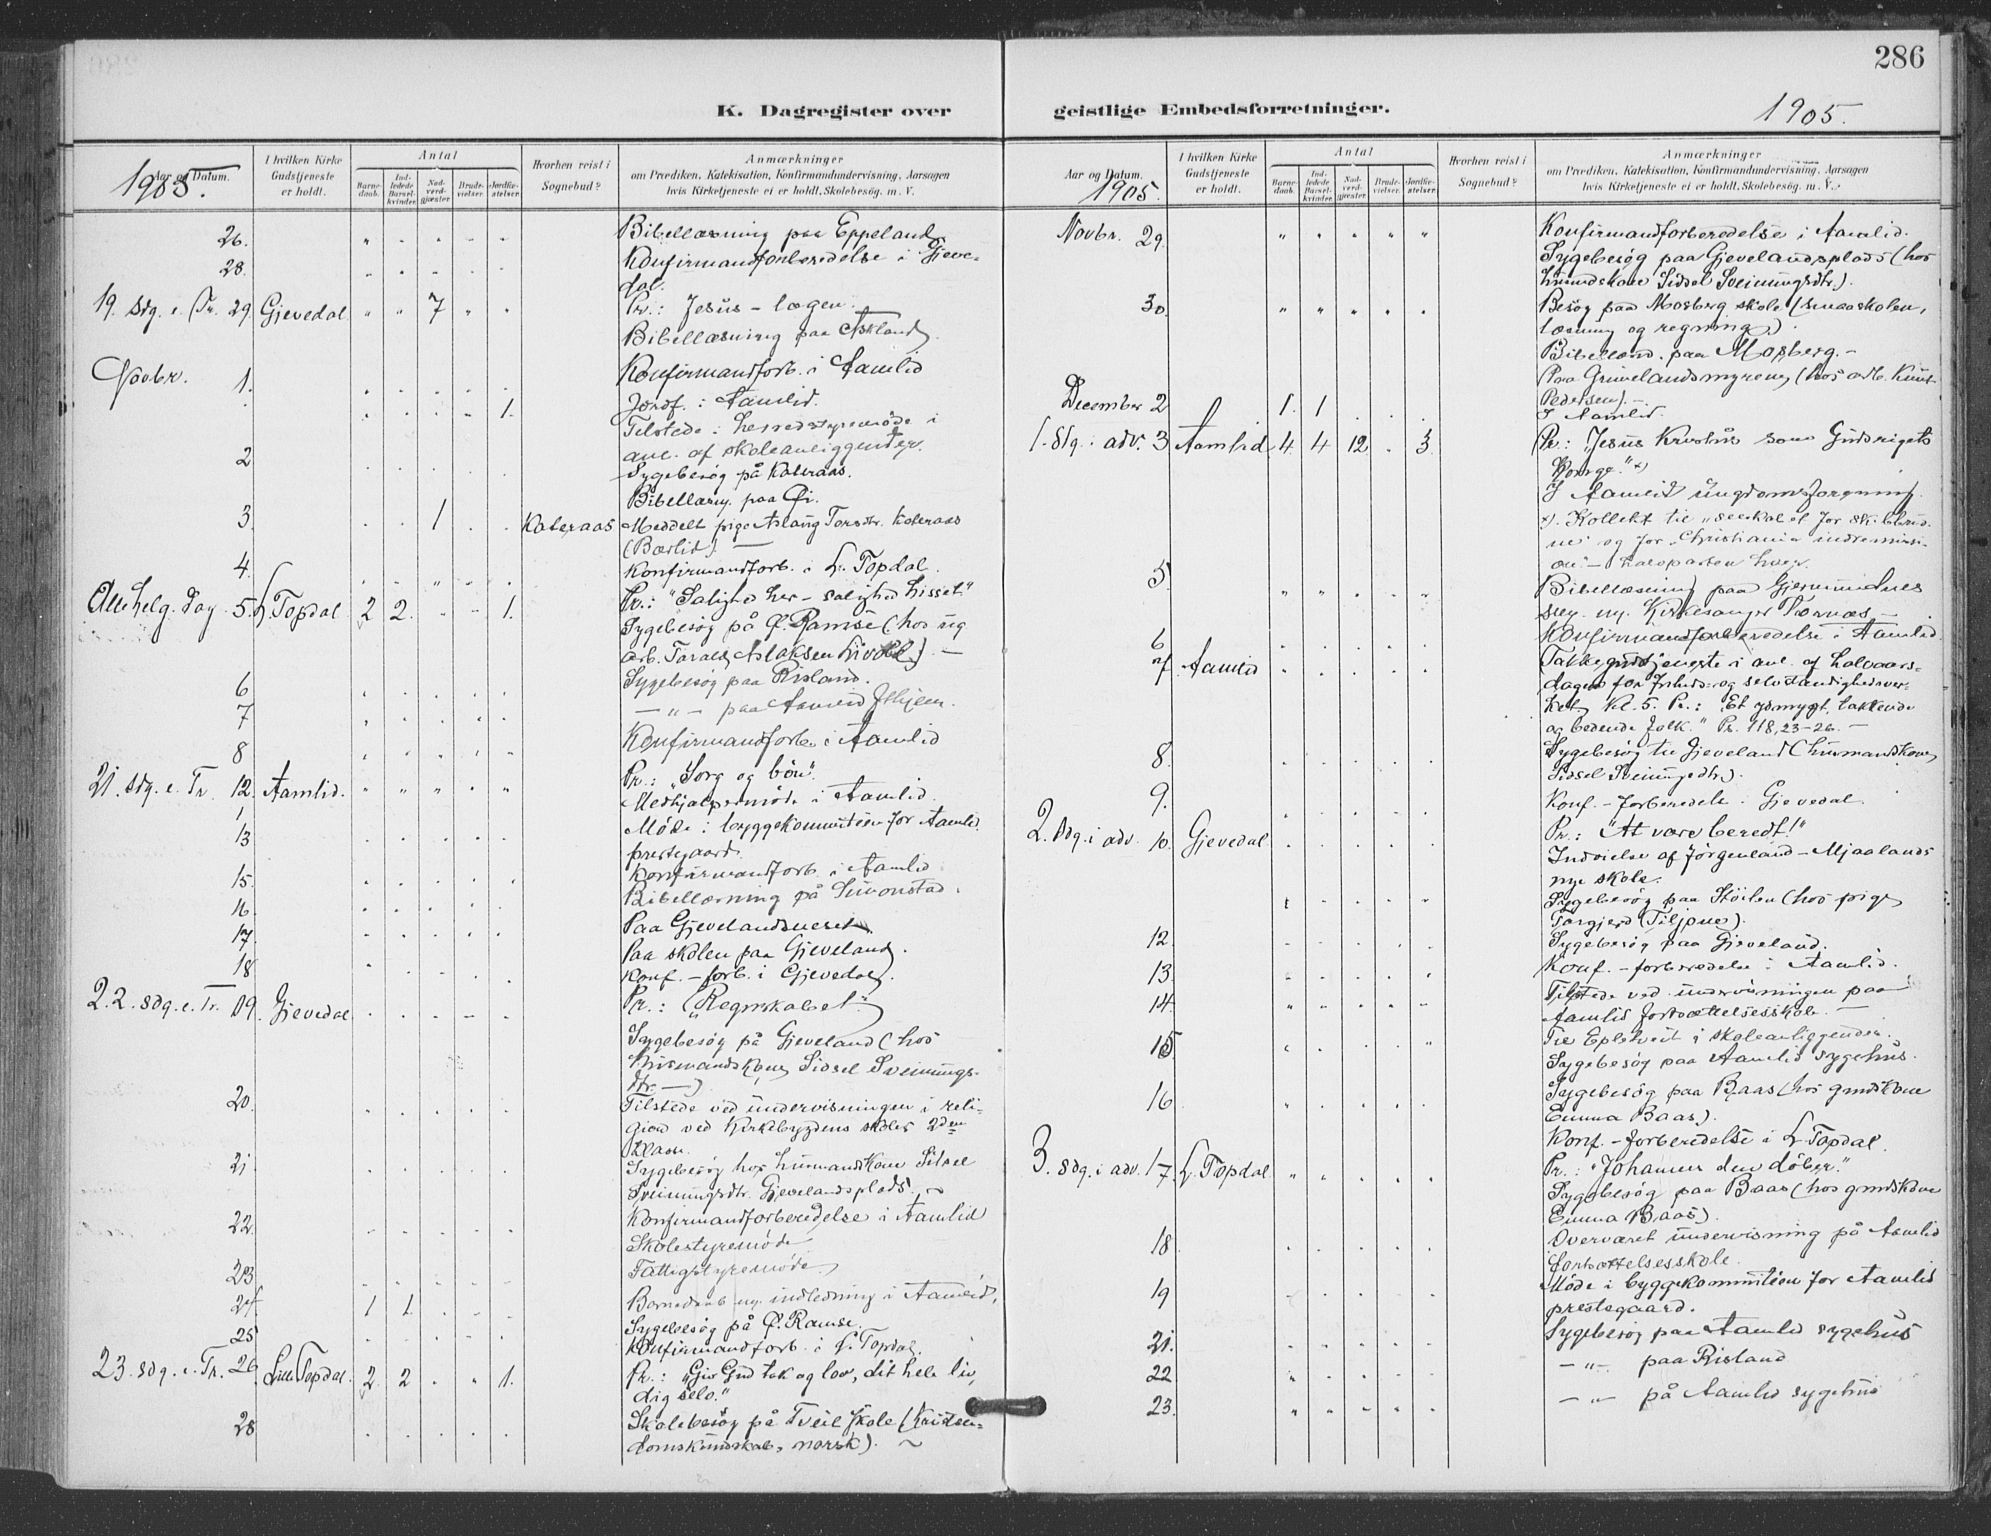 286
K. Dagregister over
geistlige Embedsforretninger.
1905.
Aar og Datum.
1905.
I hvilken Kirke Gudstjeneste er holdt.
Antal
Barne-daab.
Ind-ledede Barsel-kvinder.
Nad-verd-gjæster
Brude-vielser.
Jordfæ-stelser.
Hvorhen reist i Sognebud?
Anmærkninger
om Prædiken, Katekisation, Konfirmandundervisning, Aarsagen
hvis Kirketjeneste ei er holdt, Skolebesøg, m. V.
26. Bibellæsning paa Eppeland
28. Konfirmandforberedelse i Gjeve-
dal.
19. sdg. e. Tr. 29. Gjevedal " " 7 " " Pr.: Jesus - lægen.
Bibellæsning paa Askland
Novbr. 1. Konfirmandforb. i Aamlid
1. Jordf. i Aamlid.
Tilstede i herredsstyremøde i
anl. af skoleanliggender.
2 Sygebesøg på Kateraas.
Bibellæsn. paa Øi.
3. 1 Kateraas Meddelt pige Aslaug Torsdtr. Kateraas
(Bærlid). —
4. Konfirmandforb. i L. Topdal.
Allehelg. dag 5. L. Topdal 2 2. " " 1. Pr.: "Salighed her - salighed hisset."
Sygebesøg på Ø. Ramse (hos
arb. Tarald Aslaksen ). —
6 Sygebesøg paa Risland.
7 — " — paa Aamlid
8 Konfirmandforb. i Aamlid
21. sdg. e. Tr. 12. Aamlid. " " " " " Pr.: "Sorg og bön".
Medhjælpermöde i Aamlid.
13 Möde i byggekomiteen for Aamlid
prestegaard.
15. Konfirmandforb. i Aamlid
16. Bibellæsning på Simonstad.
17. Paa Gjevelandsneset
18 Paa skolen paa Gjeveland.
Konf. - forb. i Gjevedal.
22. sdg. e. Tr. 19. Gjevedal Pr.: "Regnskabet."
Sygebesøg på Gjeveland (hos
husmandskone Sidsel Sveinungs-
dtr. —).
20. Tilstede ved undervisningen i reli-
gion ved Kirkebygdens skoles 2den
klasse.
21 Sygebesøg hos husmandskone Sidsel
Sveinungsdtr. Gjevelandsplads.
22. Konfirmandforberedelse i Aamlid
Skolestyremöde
23 Fattigstyremöde
24 1 1. Barnedaab m. indledning i Aamlid.
25 Sygebesøg på Ø. Ramse.
Konfirmandforb. i L. Topdal.
23. sdg. e. Tr. 26 Lille Topdal. 2 2 " " 1. Pr.: "Giv Gud tak og lov, dit hele liv,
dig selv."
28 Skolebesøg på Tveit skole (Kristen-
domskundskab, norsk).
Aar og Datum.
1905.
I hvilken Kirke Gudstjeneste er holdt.
Antal
Barne-daab.
Ind-ledede Barsel-kvinder.
Nad-verd-gjæster
Brude-vielser.
Jordfæ-stelser.
Hvorhen reist i Sognebud?
Anmærkninger
om Prædiken, Katekisation, Konfirmandundervisning, Aarsagen
hvis Kirketjeneste ei er holdt, Skolebesøg, m. V.
Novbr. 29. " " " " " Konfirmandforberedelse i Aamlid.
Sygebesøg paa Gjevelandsplads (hos
husmandskone Sidsel Sveinungsdtr.).
30. " " " " " Besøg paa Mosberg skole (smaaskolen,
læsning og regning).
Bibellæsn. paa Mosberg. -
Paa Grimelandsmyren (hos arb. Knut
Pedersen). -
December 2 1. 1 I Aamlid.
1. sdg. i adv. 3 Aamlid 4 4 12 . 3 Pr.: "Jesus Kristus som Gudsrigets
Konge." x)
I Aamlid ungdomsforening.
x). Kollekt til "selskabet for sk. blind-
ne" og for "Christiania indremissi-
on" - halvparten hver.
5 Bibellæsning paa Gjermundnes
m. Kirkesanger Tørnæs -
6 Konfirmandforberedelse i Aamlid.
7 Aamlid Takkegudstjeneste i anl. af halvaars-
dagen for friheds- og selvstændighedsver-
ket kl. 5. Pr.: "Et ydmygt, takkende
og bedende folk." Ps. 118, 23-26. -
8. Sygebesøg til Gjeveland (husmandskone
Sidsel Sveinungsdtr.).
9. Konf. - forberedelse i Gjevedal.
2. sdg. i adv. 10. Gjevedal Pr.: "At være beredt!"
Indvielse af Jörgenland - Mjaalands
nye skole.
Sygebesøg paa Stöilen (hos pige
Torgjerd ).
12. Sygebesøg paa Gjeveland.
13. Konf. - forberedelse i Aamlid.
14. Tilstede ved undervisningen paa
Aamlid fortsættelsesskole. —
15 Til Eplekveit i skoleanliggender.
Sygebesøg paa Aamlid sygehus.
16 Sygebesøg paa Baas (hos gmdskone
Emma Baas).
Konf. - forberedelse i L. Topdal.
3. sdg. i adv. 17. L. Topdal Pr.: "Johannes den døber."
Sygebesøg paa Baas (hos gmdskone
Emma Baas).
18 Overværet undervisning på Aamlid
fortsættelsesskole.
19 Møde i byggekomiteen for Aamlid
prestegaard.
21. Sygebesøg paa Aamlid sygehus
22 — " — paa Risland
23. — " — på Aamlid sygehus